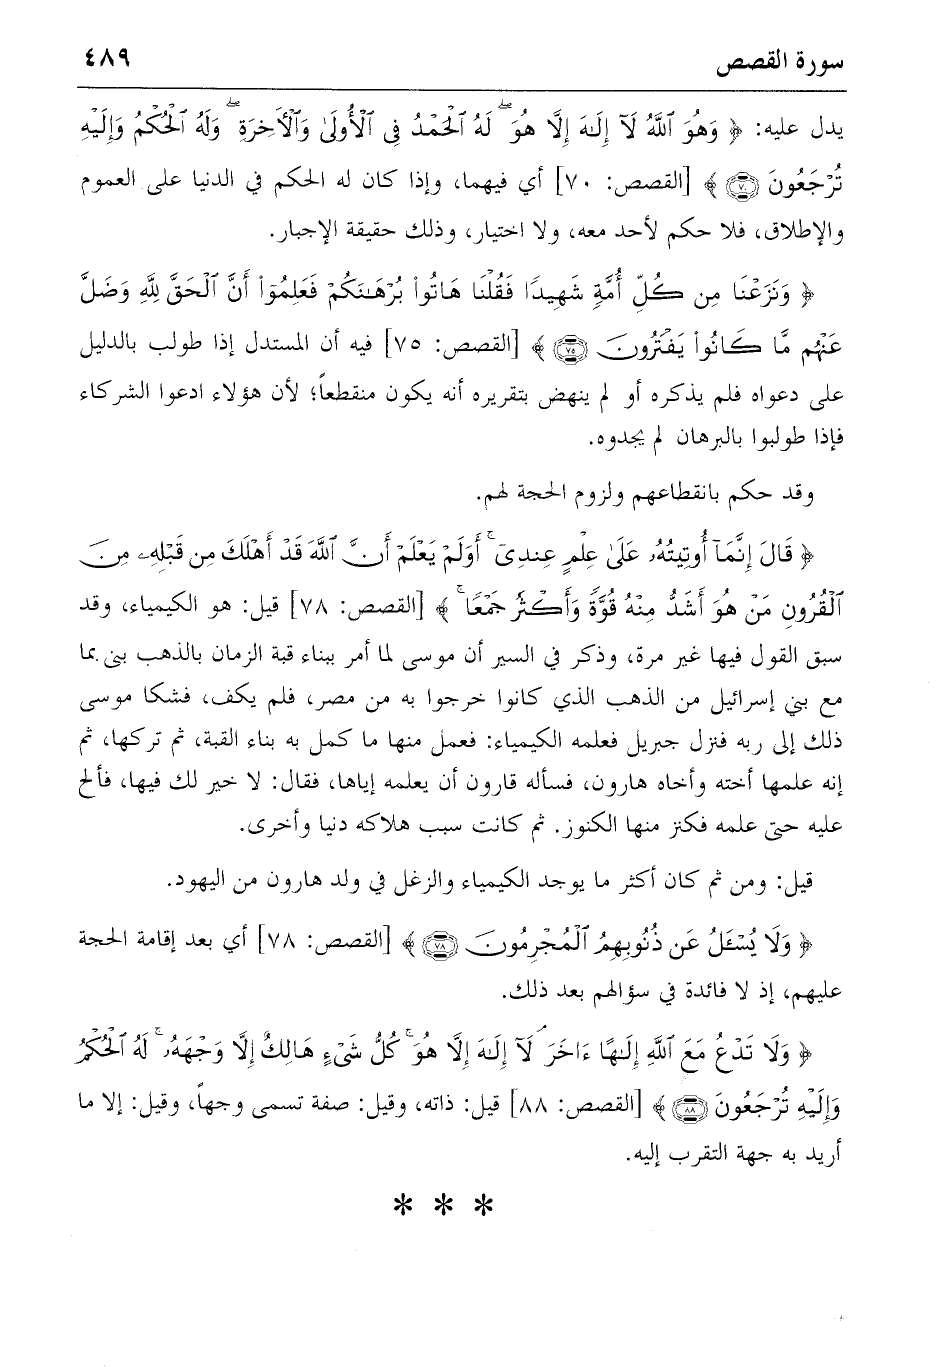 سورة القصص ٤٨٩
يدل عليه: ﴿ وَهُوَ ٱللَّهُ لَآ إِلَـٰهَ إِلَّا هُوَ ۖ لَهُ ٱلْحَمْدُ فِى ٱلْأُولَىٰ وَٱلْـَٔاخِرَةِ ۖ وَلَهُ ٱلْحُكْمُ وَإِلَيْهِ
تُرْجَعُونَ ٧٠ ﴾ [القصص: ٧٠] أي فيهما، وإذا كان له الحكم في الدنيا على العموم
والإطلاق، فلا حكم لأحد معه، ولا اختيار، وذلك حقيقة الإجبار.
﴿ وَنَزَعْنَا مِن كُلِّ أُمَّةٍ شَهِيدًا فَقُلْنَا هَاتُوا۟ بُرْهَـٰنَكُمْ فَعَلِمُوٓا۟ أَنَّ ٱلْحَقَّ لِلَّهِ وَضَلَّ
عَنْهُم مَّا كَانُوا۟ يَفْتَرُونَ ٧٥ ﴾ [القصص: ٧٥] فيه أن المستدل إذا طولب بالدليل
على دعواه فلم يذكره أو لم ينهض بتقريره أنه يكون منقطعاً؛ لأن هؤلاء ادعوا الشركاء
فإذا طولبوا بالبرهان لم يجدوه.
وقد حكم بانقطاعهم ولزوم الحجة لهم.
﴿ قَالَ إِنَّمَآ أُوتِيتُهُۥ عَلَىٰ عِلْمٍ عِندِىٓ ۚ أَوَلَمْ يَعْلَمْ أَنَّ ٱللَّهَ قَدْ أَهْلَكَ مِن قَبْلِهِۦ مِنَ
ٱلْقُرُونِ مَنْ هُوَ أَشَدُّ مِنْهُ قُوَّةً وَأَكْثَرُ جَمْعًا ۚ ﴾ [القصص: ٧٨] قيل: هو الكيمياء، وقد
سبق القول فيها غير مرة، وذكر في السير أن موسى لما أمر ببناء قبة الزمان بالذهب بنى بما
مع بني إسرائيل من الذهب الذي كانوا خرجوا به من مصر، فلم يكف، فشكا موسى
ذلك إلى ربه فنزل جبريل فعلمه الكيمياء: فعمل منها ما كمل به بناء القبة، ثم تركها، ثم
إنه علمها أخته وأخاه هارون، فسأله قارون أن يعلمه إياها، فقال: لا خير لك فيها، فألح
عليه حتى علمه فكنز منها الكنوز. ثم كانت سبب هلاكه دنيا وأخرى.
قيل: ومن ثم كان أكثر ما يوجد الكيمياء والزغل في ولد هارون من اليهود.
﴿ وَلَا يُسْـَٔلُ عَن ذُنُوبِهِمُ ٱلْمُجْرِمُونَ ٧٨ ﴾ [القصص: ٧٨] أي بعد إقامة الحجة
عليهم، إذ لا فائدة في سؤالهم بعد ذلك.
﴿ وَلَا تَدْعُ مَعَ ٱللَّهِ إِلَـٰهًا ءَاخَرَ ۘ لَآ إِلَـٰهَ إِلَّا هُوَ ۚ كُلُّ شَىْءٍ هَالِكٌ إِلَّا وَجْهَهُۥ ۚ لَهُ ٱلْحُكْمُ
وَإِلَيْهِ تُرْجَعُونَ ٨٨ ﴾ [القصص: ٨٨] قيل: ذاته، وقيل: صفة تسمى وجهاً، وقيل: إلا ما
أريد به جهة التقرب إليه.
* * *